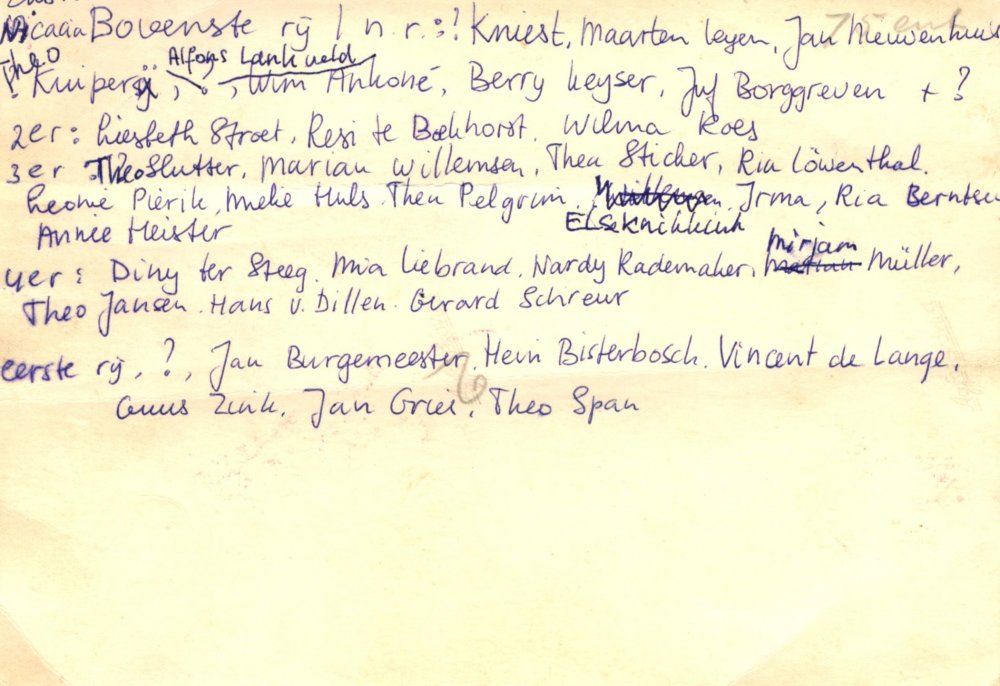 Bovenste rij l n. r. : ? Kniest, Maarten Leyen, Jan Nieuwenhuis
Theo Alfons Lankveld
? Kuipers, ?, Wim Ankoné, Berry Keyser, Juf Borggreven + ?
2er : Liesbeth Stroet, Resi te Bokhorst. Wilma Roes
3er : Theo Slutter, Marian Willemsen, Thea Sticher, Ria Löwenthal.
Leonie Pierik, Mieke Huls. Thea Pelgrim, Irma, Ria Berntsen
Else
Annie Heister
Mirjam
4er : Diny ter Steeg. Mia Liebrand. Nardy Rademaker, Müller,
Theo Jansen. Hans v. Dillen. Gerard Schreur
eerste rij, ?, Jan Burgemeester, Hein Bisterbosch. Vincent de Lange,
Guus Zink, Jan Gries, Theo Span